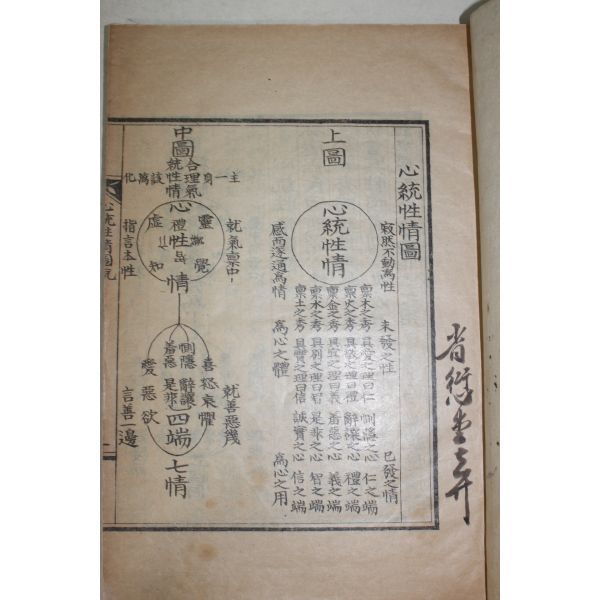 心統性情圖
上圖
心統性情
寂然不動爲性
感而遂通爲情
未發之性
爲心之體
已發之情
爲心之用
稟木之秀 具愛之理曰仁 惻隱之心 仁之端
稟火之秀 具敬之理曰禮 辭讓之心 禮之端
稟金之秀 具宜之理曰義 羞惡之心 義之端
稟水之秀 具別之理曰智 是非之心 智之端
稟土之秀 具實之理曰信 誠實之心 信之端
中圖
合理氣
統性情
主一身
該萬化
心
虛靈
知覺
禮
性
情
就氣稟中
指言本性
惻隱
辭讓
羞惡
是非
四端
七情
喜怒哀懼
愛惡欲
就善惡幾
言善一邊
心統性情圖